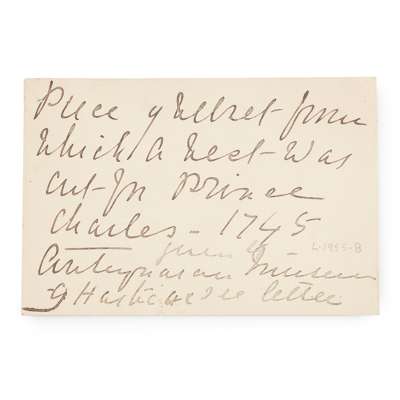 Piece of Velvet from
which a Vest was
cut for Prince
Charles - 1745
given by L.1955-B
Antiquarian Museum
see letter